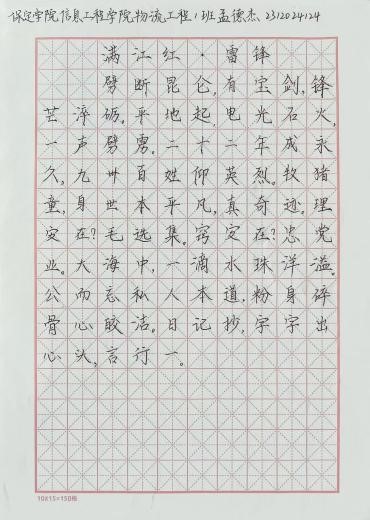 保定学院信息工程学院物流工程1班孟德杰、2312024124
满江红·雷锋
劈断昆仑,有宝剑,锋
芒淬砺。平地起,电光石火,
一声劈雳。二十二年成永
久,九卅百姓仰英烈。牧猪
童,身世本平凡,真奇迹。理
安在?毛选集。窍安在?忠党
业。大海中,一滴水珠洋溢。
公而忘私人本道,粉身碎
骨心皎洁。日记抄,字字出
心头,言行一。
10X15=150格